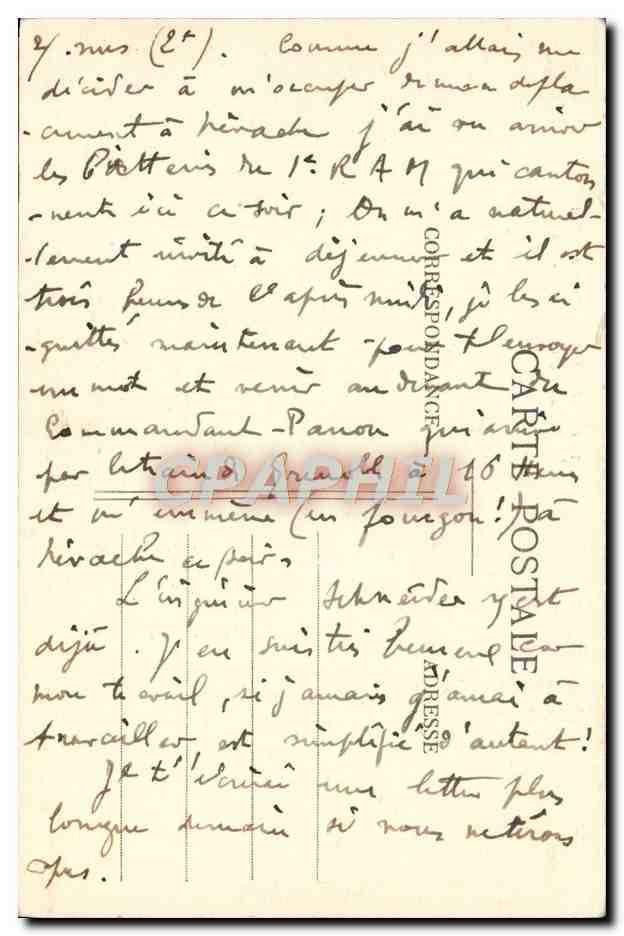 2/. nus (2t). Comme j'allais me
décider à m'occuper de mon dépla
-cement à Névache j'ai vu arriver
les Batteries du 1er R A M qui canton
-nent ici ce soir; On m'a naturel-
-lement invité à déjeuner et il est
trois heures de l'après midi, je les ai
-quittés maintenant pour t'envoyer
un mot et venir au devant du
Commandant Panon qui arrive
par le train de Grenoble à 16 heures
et m'emmène (en fourgon!) à
Névache ce soir.
L'ingénieur Schneider y est
déjà. J'en suis très heureux car
mon travail, si jamais j'arrive à
travailler, est simplifié d'autant!
Je t'écrirai une lettre plus
longue demain si nous ne tirons
pas.
CARTE POSTALE
CORRESPONDANCE
ADRESSE
CPAPHIL